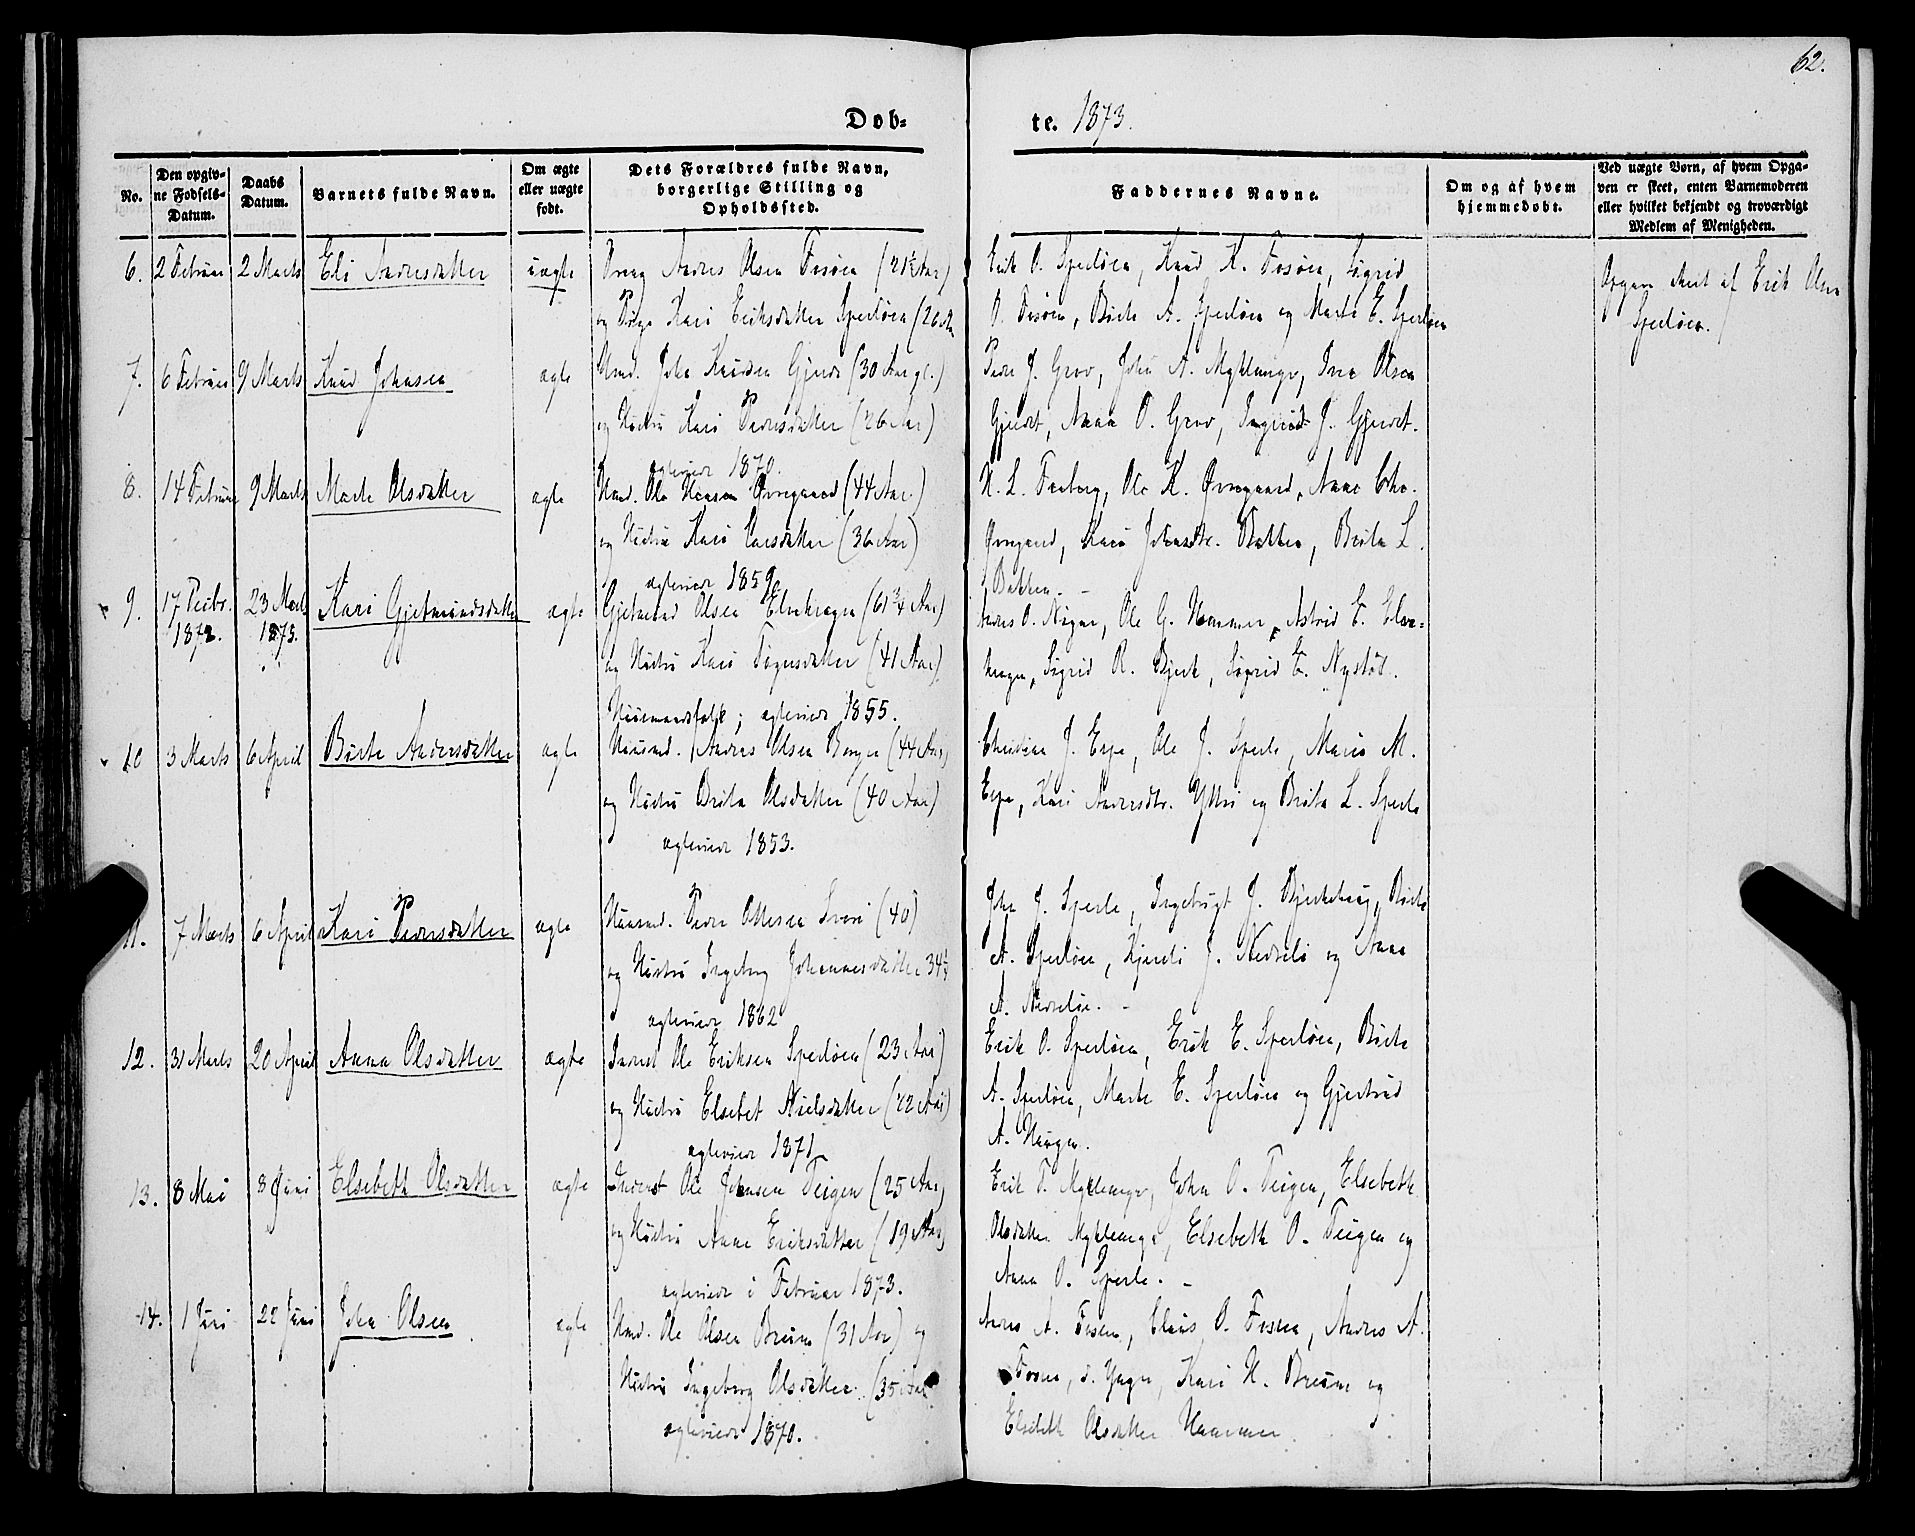 62.
Døb-
te. 1873.
No.
Den opgiv-
ne Fødsels-
Datum.
Daabs
Datum.
Barnets fulde Navn.
Om ægte
eller uægte
født.
Dets Forældres fulde Navn,
borgerlige Stilling og
Opholdssted.
Faddernes Navne.
Om og af hvem
hjemmedøbt.
Ved uægte Børn, af hvem Opga-
ven er skeet, enten Barnemoderen
eller hvilket bekjendt og troværdigt
Medlem af Menigheden.
6. 2 Februar 2 Marts Eli Andersdatter uægte
Andres Olsen Fosøen (21½ Aar)
og Pige Kari Eriksdatter Sperløen (26 Aar
Erik O. Sperløen, Knud K. Fosøen, Sigrid
O. Fosøen, Birte A. Sperløen og Marte E. Sperløen
skeet af Erik Olsen
Sperløen.
7. 6 Februar 9 Marts Knud Johnsen ægte
Gmd. John Knudsen (30 Aar gl.)
og Hustru Kari Pedersdatter (26 Aar)
ægteviede 1870.
Peder J. Grov, John A. Myklanger, Iver Olsen
Anna O. Grov, Ingrid J.
8. 14 Februar 9 Marts Marte Olsdatter ægte
Gmd. Ole Hansen Øvregaard (44 Aar.)
og Hustru Kari Larsdatter (36 Aar)
ægteviede 1859
H. L. Ole K. Øvregaard, Anne
Øvregaard, Kari Johnsdtr. Bakken, Brita L.
Bakken.
9. 17 Decbr. 1872. 23 Marts 1873. Kari Gjetmundsdatter ægte
Gjetmund Olsen Elvekragen (61¾ Aar)
og Hustru Kari (41 Aar),
Huusmandsfolk; ægteviede 1855.
Andres O. Ole G. Hammer, Astrid E. Elve-
kragen, Sigrid R. Bjerk, Sigrid E. Nystøl.
10 3 Marts 6 April Birte Andersdatter ægte
Huusmd. Andres Olsen (44 Aar)
og Hustru Brita Olsdatter (40 Aar)
ægteviede 1853.
Christian J. Espe, Ole J. Sperle, Marie M.
Espe, Kari Andersdtr. Yttri og Brita L. Sperle
11. 7 Marts 6 April Kari Pedersdatter ægte
Huusmd. Peder Ottesen (40)
og Hustru Ingeborg Johannesdatter 34½
ægteviede 1862
John J. Sperle, Ingebrigt J. Bjerkehaug, Birte
A. Sperløen, J. Nedreli og Anna
A. Nedrelie.
12. 31 Marts 20 April Anna Olsdatter ægte
Inderst Ole Eriksen Sperløen (23 Aar)
og Hustru Elsebet Nielsdatter (22 Aar)
ægteviede 1871
Erik O. Sperløen, Erik E. Sperløen, Birte
A. Sperløen, Marte E. Sperløen og Gjertrud
A. Haugen.
13. 8 Mai 8 Juni Elsebeth Olsdatter ægte
Inderst Ole Johnsen Teigen (25 Aar)
og Hustru Anne Eriksdatter (19 Aar)
ægteviede i Februar 1873.
Erik T. Myklanger, John O. Teigen, Elsebeth
Olsdatter Myklanger, Elsebeth O. Teigen og
Anna O. Sperle.
14. 1 Juni 22 Juni John Olsen ægte
Gmd. Ole Olsen Bruun (31 Aar) og
Hustru Ingeborg Olsdatter (35 Aar
ægteviede 1870.
Andres A. Fosen, Claus O. Fosen, Andres A.
Fosen, d. Yngre, Kari H. Bruun og
Elsebeth Olsdatter Hammer